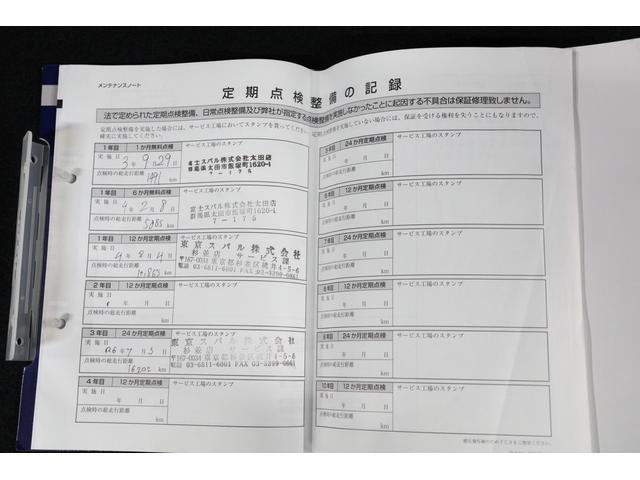 メンテナンスノート
定期点検整備の記録
法で定められた定期点検整備、日常点検整備及び弊社が指定する点検整備を実施しなかったことに起因する不具合は保証修理致しません。
定期点検整備を実施した場合には、サービス工場においてスタンプを貰ってください。
確実に実施してください。
1年目 1か月無料点検 サービス工場のスタンプ
実施日 3年9月29日
点検時の総走行距離 km
富士スバル株式会社太田店
群馬県太田市飯塚町1620-1
7-175
1年目 6か月無料点検 サービス工場のスタンプ
実施日 4年2月8日
点検時の総走行距離 5885km
富士スバル株式会社太田店
群馬県太田市飯塚町1620-1
7-175
1年目 12か月定期点検 サービス工場のスタンプ
実施日 4年8月4日
点検時の総走行距離 km
東京スバル株式会社
杉並店 サービス課
〒167-0034 東京都杉並区桃井4-5-6
電話 03-6811-6801 FAX 03-5299-0661
2年目 12か月定期点検 サービス工場のスタンプ
実施日 年 月 日
点検時の総走行距離 km
3年目 24か月定期点検 サービス工場のスタンプ
実施日 R6年7月3日
点検時の総走行距離 16202km
東京スバル株式会社
杉並店 サービス課
〒167-0034 東京都杉並区桃井4-5-6
電話 03-6811-6801 FAX 03-5299-0661
4年目 12か月定期点検 サービス工場のスタンプ
実施日 年 月 日
点検時の総走行距離 km
定期点検整備を実施していない場合には、保証を受ける権利を失うこともになりますので、
5年目 24か月定期点検 サービス工場のスタンプ
実施日 年 月 日
点検時の総走行距離 km
6年目 12か月定期点検 サービス工場のスタンプ
実施日 年 月 日
点検時の総走行距離 km
7年目 24か月定期点検 サービス工場のスタンプ
実施日 年 月 日
点検時の総走行距離 km
8年目 12か月定期点検 サービス工場のスタンプ
実施日 年 月 日
点検時の総走行距離 km
9年目 24か月定期点検 サービス工場のスタンプ
実施日 年 月 日
点検時の総走行距離 km
10年目 12か月定期点検 サービス工場のスタンプ
実施日 年 月 日
点検時の総走行距離 km